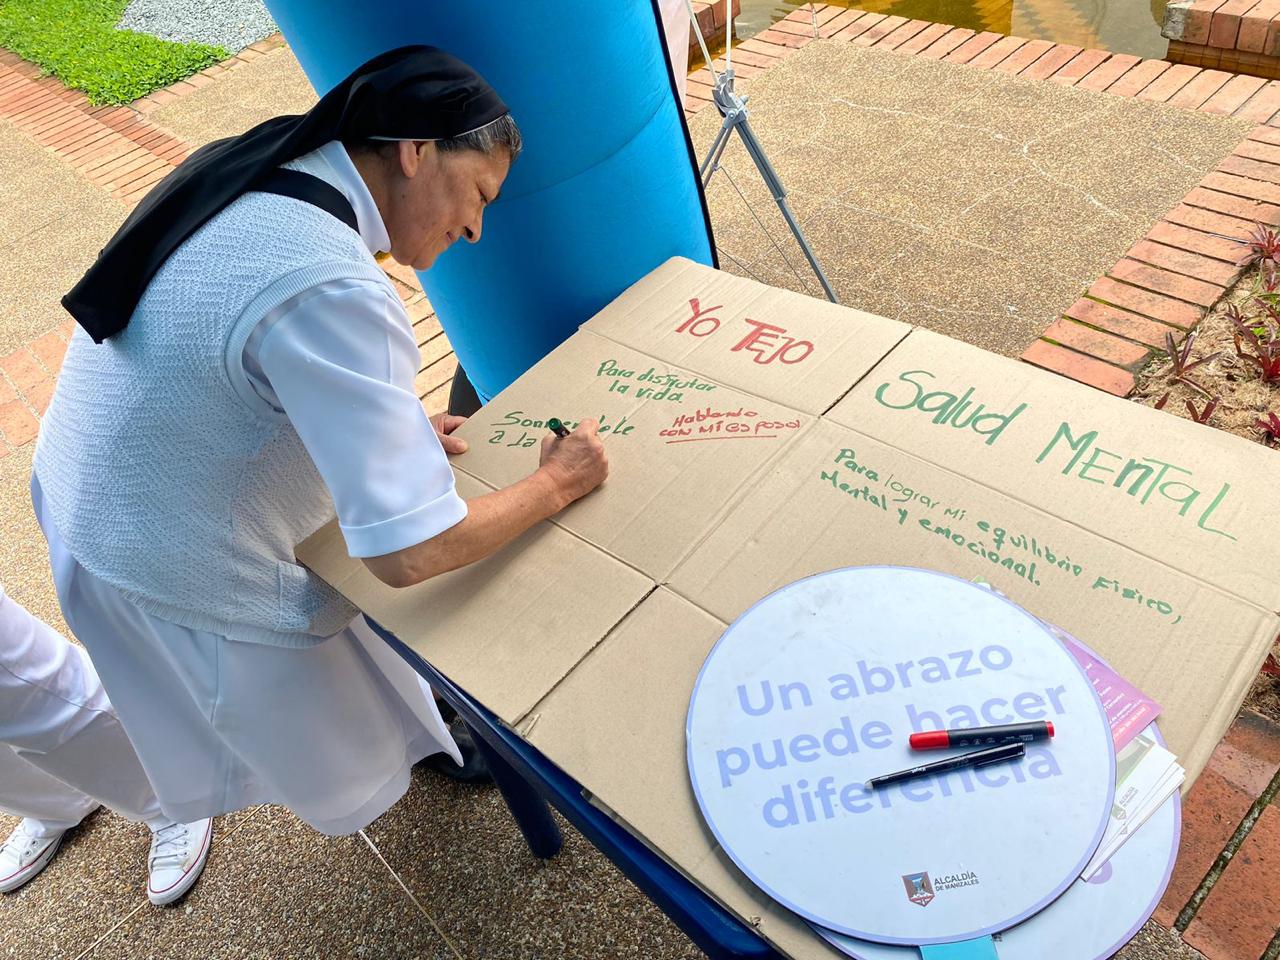 Yo TEJO
Salud MEnTaL
Para disfrutar
la vida.
Sonriendole
a la
Hablando
con Mi esposo!
Para lograr mi equilibrio Fisico,
Mental y emocional.
Un abrazo
puede hacer
diferencia
ALCALDÍA
DE MANIZALES